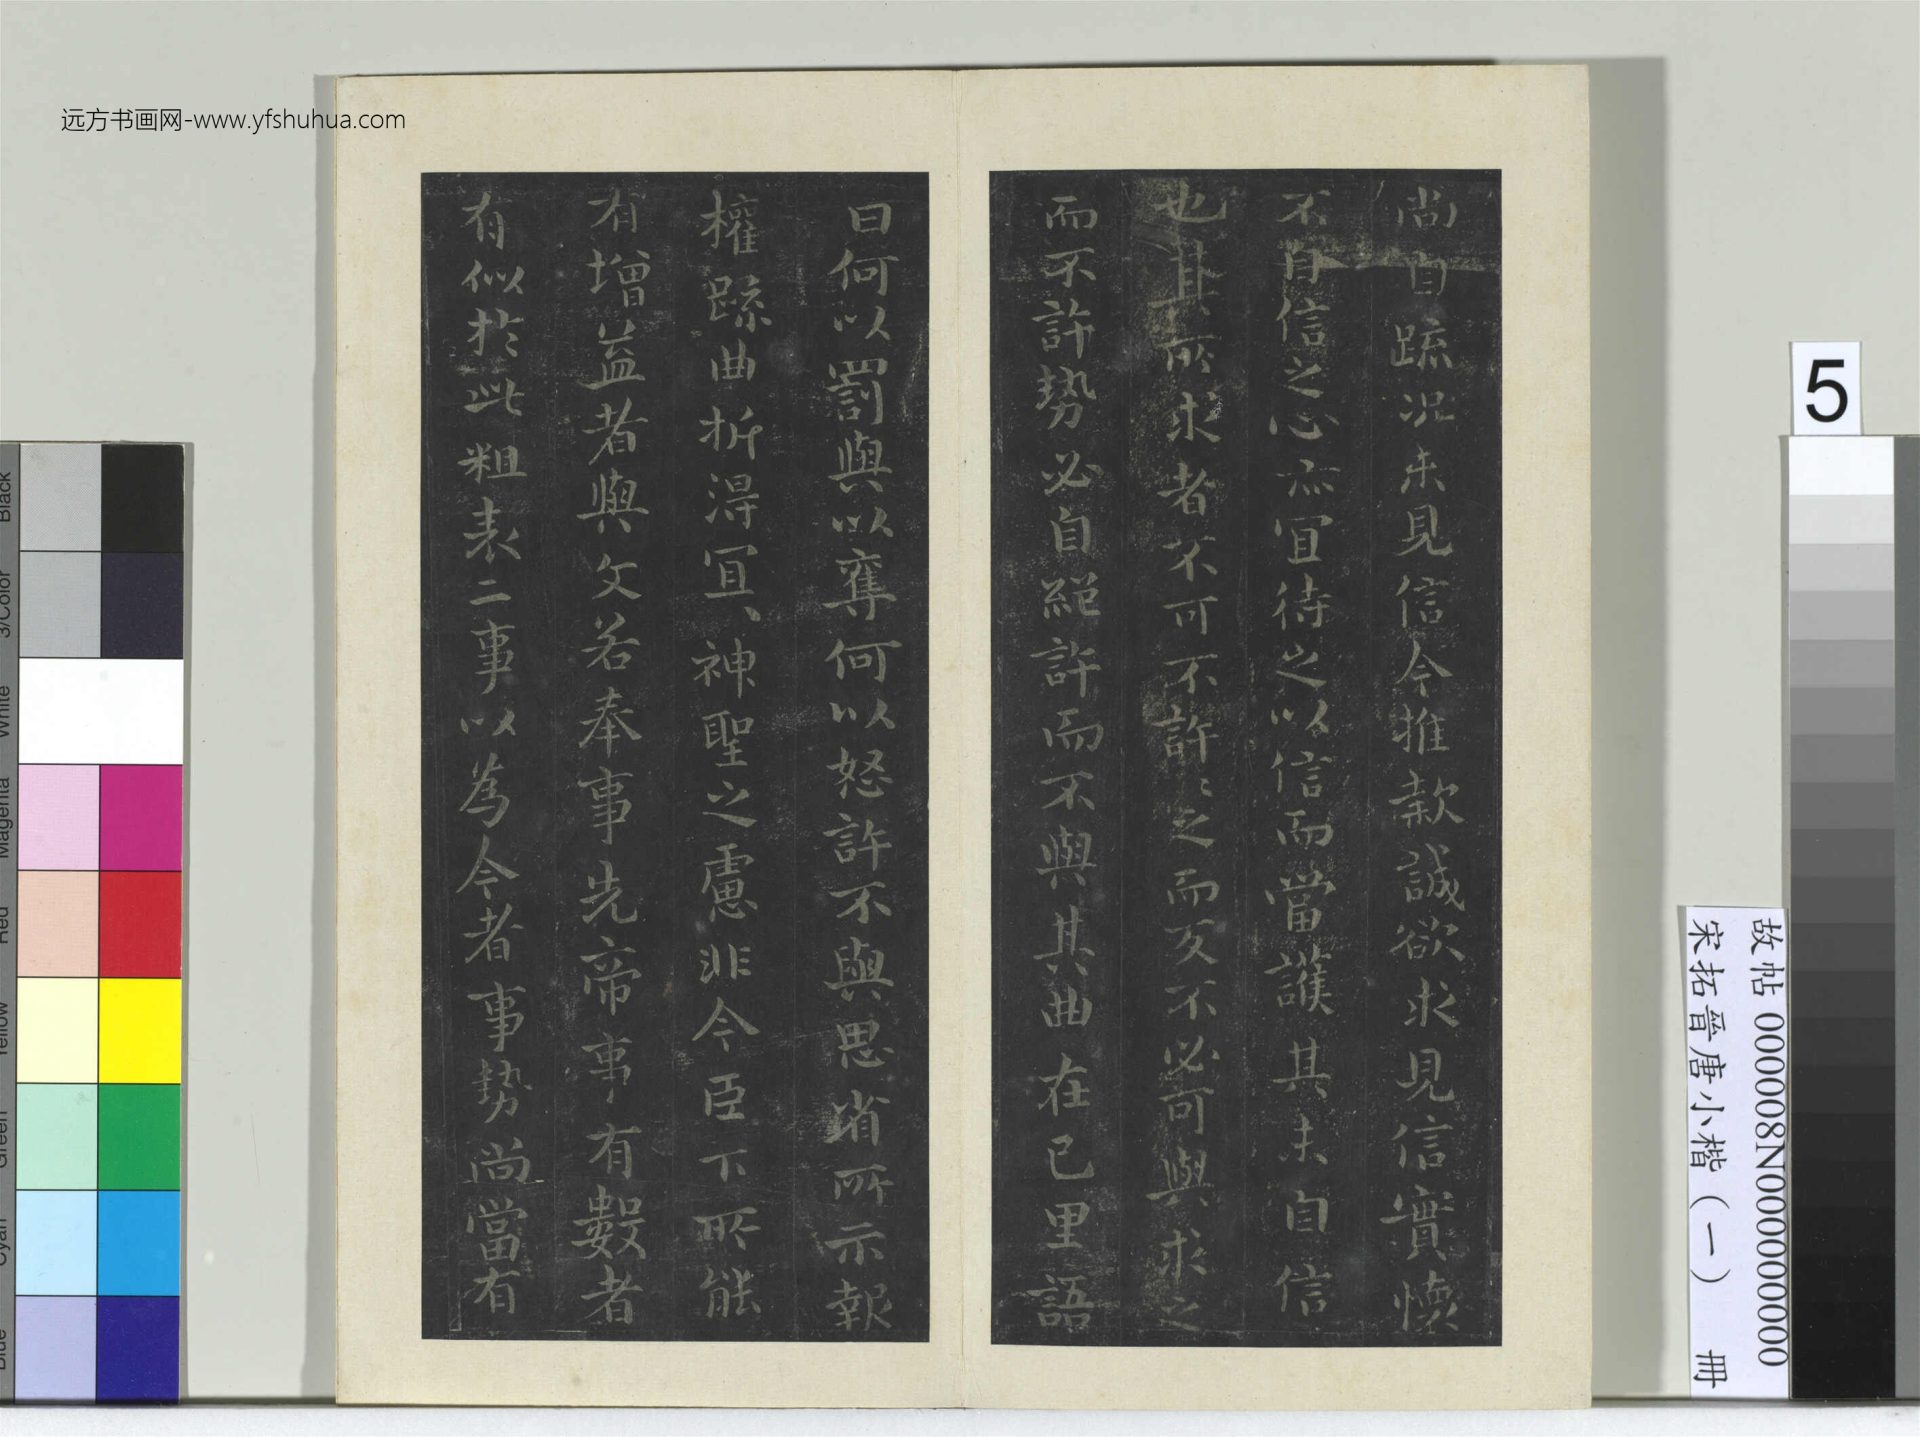 远方书画网-www.yfshuhua.com
尚自疏况未見信今推款誠欲求見信實懷
不自信之心亦冝待之以信而當護其未自信
也其所求者不可不許許之而反不必可與求之
而不許勢必自絕許而不與其曲在己里語
曰何以罰與以奪何以怒許不與思省所示報
權疏曲折得冝神聖之慮非今臣下所能
有增益者與文若奉事先帝事有數者
有似於此粗表二事以為今者事勢尚當有
5
故帖 000008N000000000
宋拓晋唐小楷（一） 册
Black
3/Color
White
Magenta
Red
Yellow
Green
Cyan
Blue